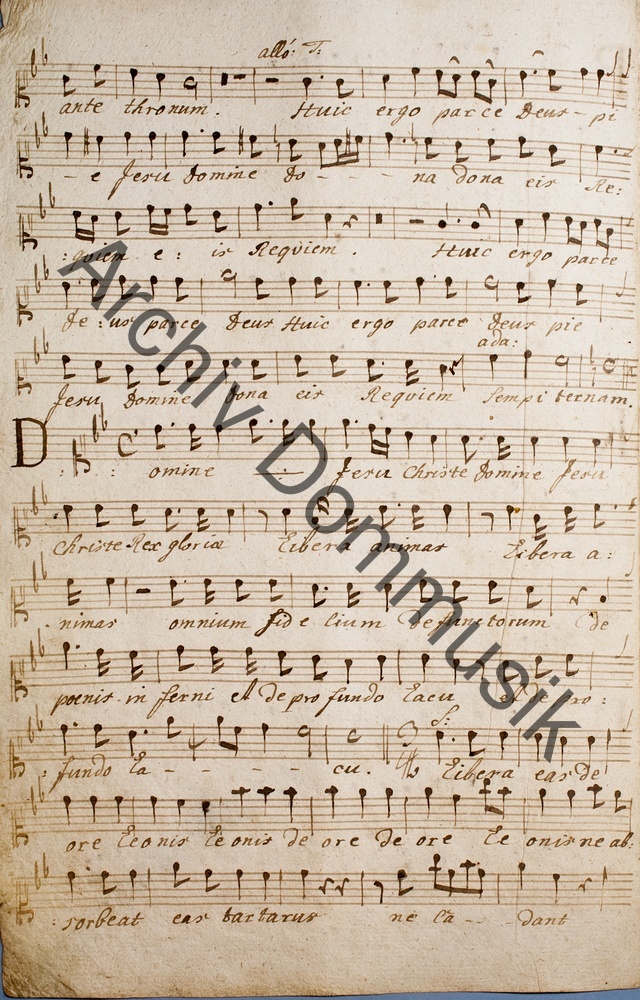 allo: T:
ante thronum. Huic ergo parce Deus - pi
- e Jesu Domine do - - - na dona eis Re:
:quiem e: is Requiem. Huic ergo parce
De:us parce Deus Huic ergo parce Deus pie
ada:
Jesu Domine dona eis Requiem Sempiternam.
D
: : omine Jesu Christe Domine Jesu
Christe Rex gloriæ Libera animas Libera a:
nimas omnium fidelium defunctorum de
poenis inferni et de profundo Lacu et de pro:
S:
fundo La - - - - cu. Libera eas de
ore Leonis Leonis de ore de ore Le onis ne ab:
:sorbeat eas tartarus ne ca - - dant
Archiv Dommusik